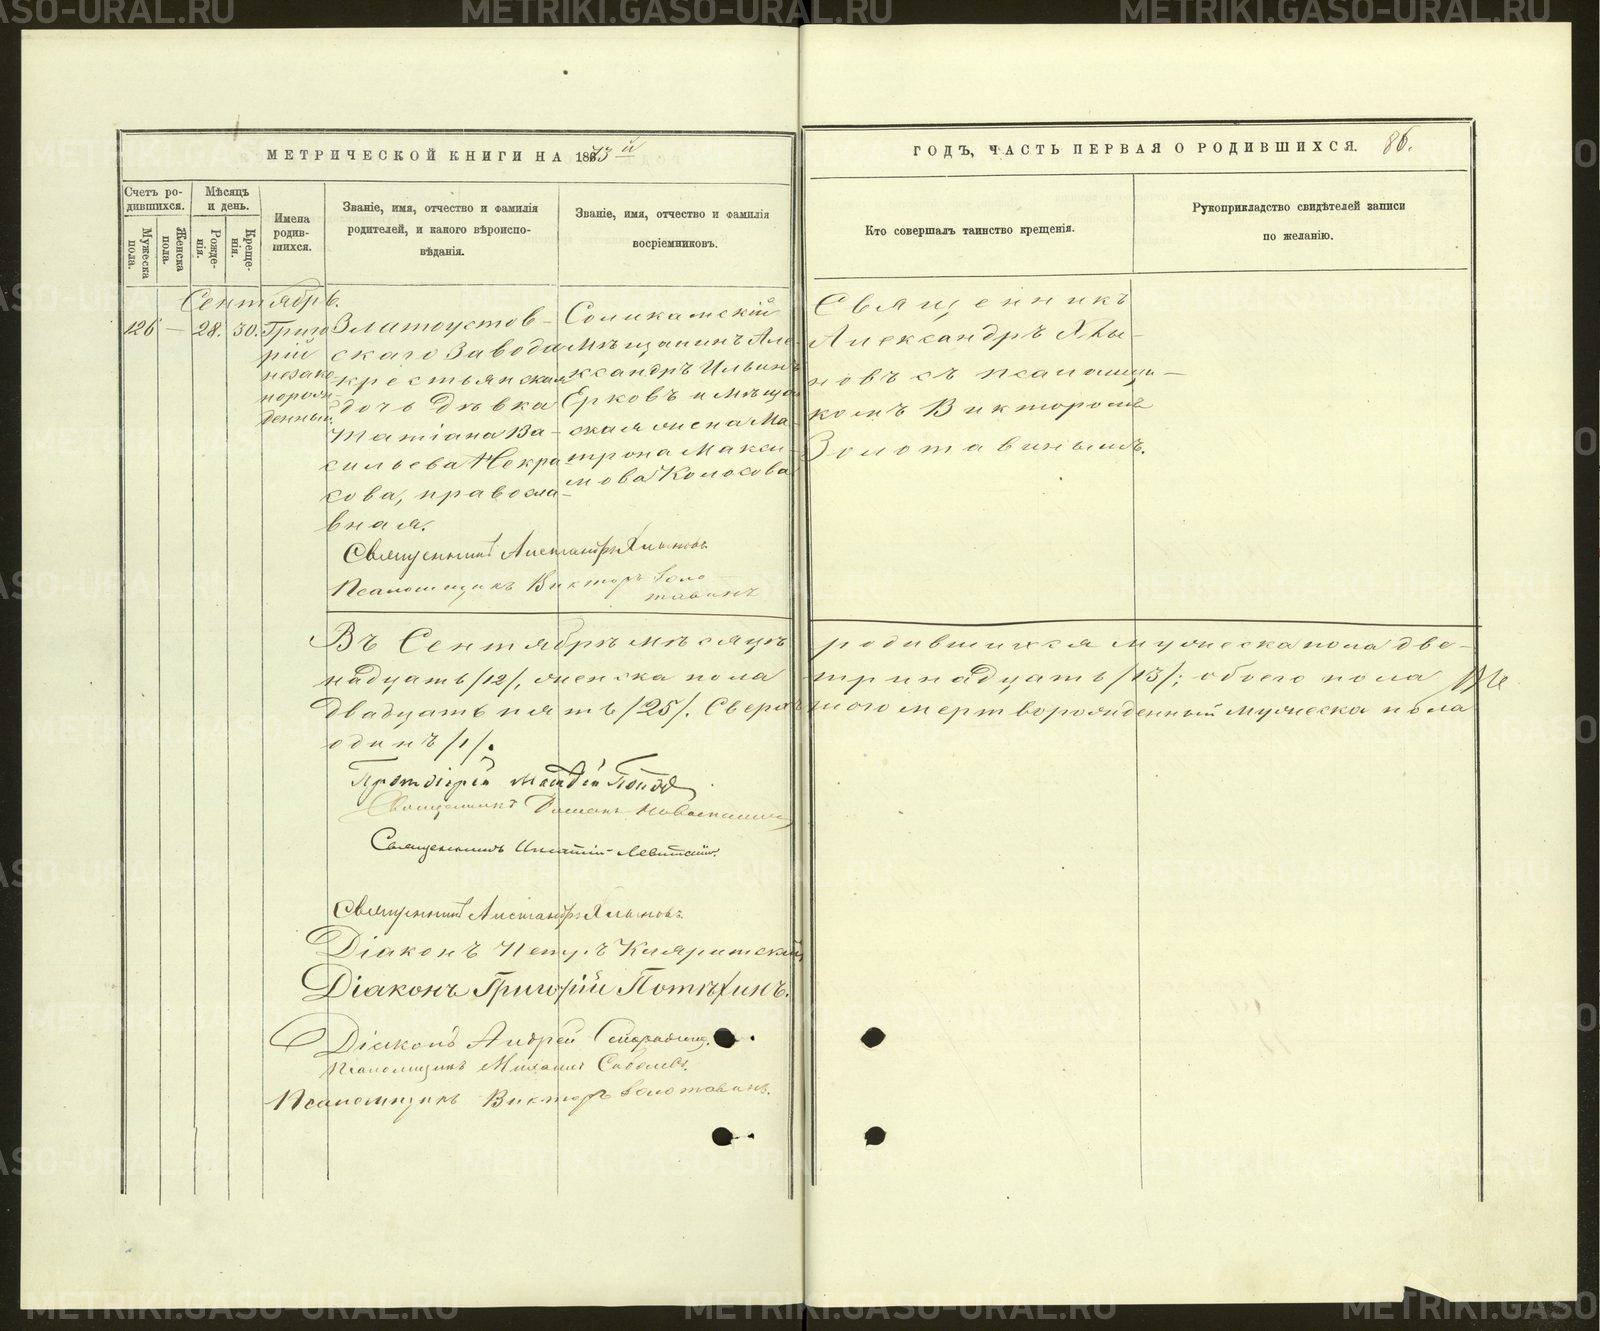 МЕТРИЧЕСКОЙ КНИГИ НА 1873й
ГОДЪ, ЧАСТЬ ПЕРВАЯ О РОДИВШИХСЯ. 86.
Счетъ ро-
дившихся.
Мужеска пола.
Женска пола.
Мѣсяцъ
и день.
Рожде-
нія.
Креще-
нія.
Имена
родив-
шихся.
Званіе, имя, отчество и фамилія
родителей, и какого вѣроиспо-
вѣданія.
Званіе, имя, отчество и фамилія
восріемниковъ.
Кто совершалъ таинство крещенія.
Рукоприкладство свидѣтелей записи
по желанію.
Сентябрь.
126 — 28. 30.
Григо
рій
незако
норож-
денный.
Златоустов-
скаго Завода
крестьянская
дочь дѣвка
Татіана Ва-
сильева Некра
сова, правосла-
вная.
Соликамскій
Мѣщанинъ Але-
ксандръ Ильинъ
Ерковъ и мѣщан
ская жена Ма-
трона Макси-
мова Колосова
Священникъ
Александръ Хлы-
новъ съ псаломщи-
комъ Викторомъ
Золотавинымъ.
Священникъ Александръ Хлыновъ
Псаломщикъ Викторъ Золо
тавинъ
Въ Сентябрѣ мѣсяцѣ родившихся мужеска пола две-
надцать /12/, женска пола тринадцать /13/; обоего пола
двадцать пять /25/. Сверхъ того мертворожденный мужеска пола
одинъ /1/.
Протоіерей Поповъ
Священникъ
Священникъ Игнатій Левитскій.
Священникъ Александръ Хлыновъ.
Діаконъ Петръ Кляритскій
Діаконъ Григорій Потѣхинъ.
Діаконъ Андрей
Псаломщикъ Михаилъ Соболевъ.
Псаломщикъ Викторъ Золотавинъ.
METRIKI.GASO-URAL.RU